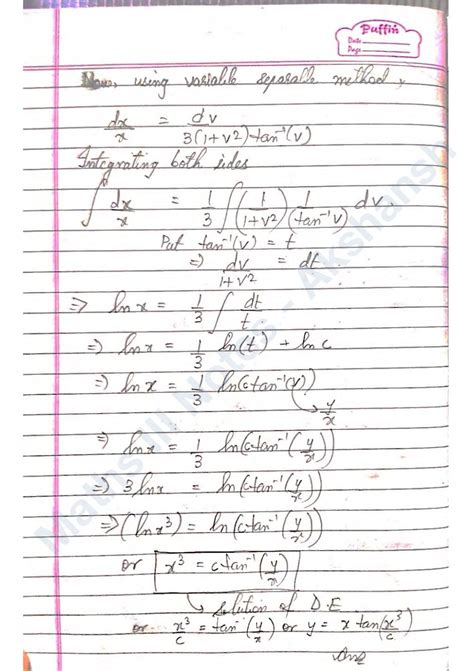 Puffin
Date
Page
Now, using variable separable method,
dx/x = dv/3(1+v²)tan⁻¹(v)
Integrating both sides
∫ dx/x = 1/3 ∫ (1/1+v²) 1/(tan⁻¹v) dv.
Put tan⁻¹(v) = t
⇒ dv/1+v² = dt
⇒ ln x = 1/3 ∫ dt/t
⇒ ln x = 1/3 ln(t) + ln c
⇒ ln x = 1/3 ln(c tan⁻¹(v))
y/x
⇒ ln x = 1/3 ln(c tan⁻¹(y/x))
⇒ 3 ln x = ln(c tan⁻¹(y/x))
⇒ (ln x³) = ln(c tan⁻¹(y/x))
or x³ = c tan⁻¹(y/x)
→ solution of D.E
or x³/c = tan⁻¹(y/x) or y = x tan(x³/c)
Ans
Maths III Notes - Akshansh